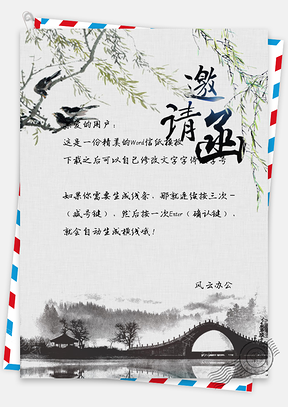 邀请函
亲爱的用户：
这是一份精美的Word信纸模板
下载之后可以自己修改文字字体字号
如果你需要生成线条，那就连续按三次－
（减号键），然后按一次Enter（确认键），
就会自动生成横线哦！
风云办公